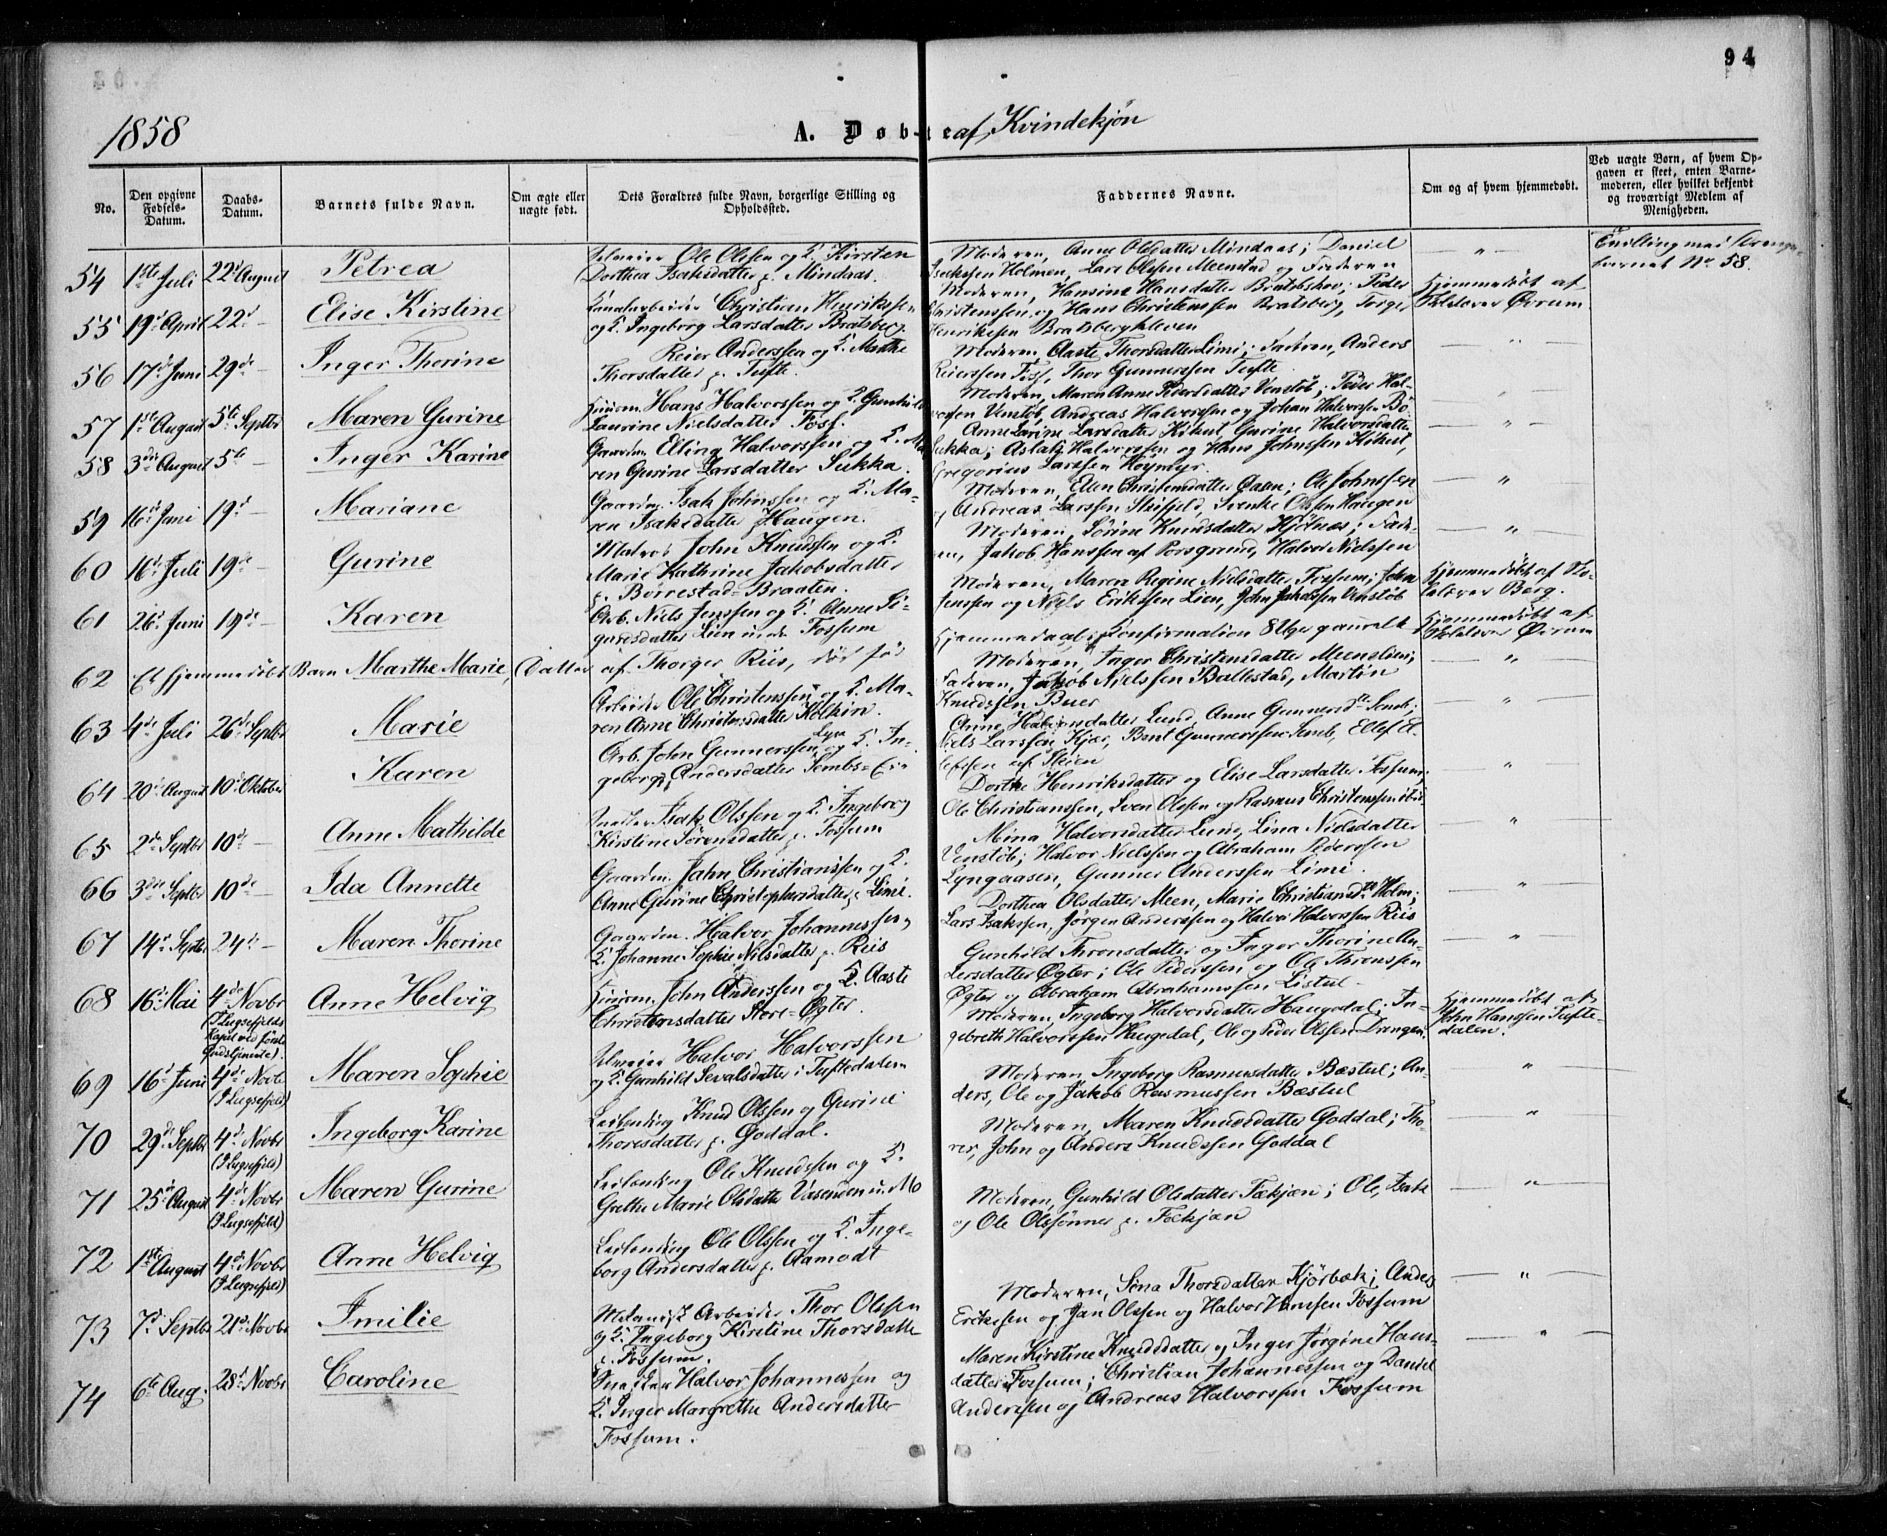 94
1858
A. Døbte af Kvindekjøn
No.
Den opgivne Fødsels-Datum.
Daabs-Datum.
Barnets fulde Navn.
Om ægte eller uægte født.
Dets Forældres fulde Navn, borgerlige Stilling og Opholdssted.
Faddernes Navne.
Om og af hvem hjemmedøbt.
Ved uægte Børn, af hvem Opgaven er skeet, enten Barnemoderen, eller hvilket bekjendt og troværdigt Medlem af Menigheden.
54 1ste Juli 22d August Petrea
Ole Olssen og K. Kirsten
Dorthea Isaksdatter p. Mindaas.
Moderen, Anne Olsdatter Mindaas; Daniel
Isakssen Holmen, Lars Olssen Meenstad og Faderen
Tvilling med Drengebarnet No 58.
55 19d April 22d — Elise Kirstine
Kanalarbeider Christian Henrikssen
og K. Ingeborg Larsdatter Bratsberg
Moderen, Hansine Hansdatter Bratsberg; Peder
Christenssen og Hans Christenssen Bratsberg,
Henrikssen Bratsbergkleven
Hjemmedøbt af
Skolelærer Ørum
56 17d Juni 29de — Inger Thorine
Reier Anderssen og K. Marthe
Thorsdatter p. Tufte.
Moderen, Aaste Thorsdatter Limi; Faderen, Anders
Reierssen Foss, Thor Gunnerssen Tufte
57 1ste August 5te Septbr Maren Gurine
Hans Halvorssen og K. Gunhild
Laurine Nielsdatter Foss.
Moderen, Maren Anne Pedersdatter Venstøb; Peder Hal-
vorssen Venstøb, Andreas Halvorssen og Johan Halvorssen Bö
58 3die August 5te — Inger Karine
Gaardm. Elling Halvorssen og K. Ma-
ren Gurine Larsdatter Sukka.
Anne Larine Larsdatter Kikut, Gurine Halvorsdatter
Sukka; Aslak Halvorssen og Hans Johnssen Kikut,
Gregorius Larssen Höymyr
59 16de Juni 19d — Mariane
Gaardm. Isak Johnssen og K. Ma-
ren Isaksdatter Haugen.
Moderen, Ellen Christensdatter Øasen; Ole Johnssen
og Andreas Larssen Skifjeld, Svenke Olssen Haugen
60 16d Juli 19de — Gurine
Matros John Knudssen og K.
Marie Kathrine Jakobsdatter
p. Borrestad-Braaten.
Moderen, Sörine Knudsdatter Kjölnæs; Fade-
ren, Jakob Hanssen af Porsgrund, Halvor Nielssen
61 26d Juni 19de — Karen
Arb. Niels Jenssen og K. Anne Si-
gurdsdatter Lien under Fossum
Moderen, Maren Regine Nielsdatter Fossum; John
Jenssen og Niels Erikssen Lien, John Jakobssen Venstøb
Hjemmedøbt af Sko-
lelærer Berg.
62 Et hjemmedøbt Barn Marthe Marie, Datter af Thorger Riis, död för
Hjemmedaab i Konfirmation 8 Uger gammelt
Hjemmedøbt af
Skolelærer Ørum
63 4de Juli 26de Septbr Marie
Arbeider Ole Christenssen og K. Ma-
ren Anne Christensdatter Kolkin.
Moderen, Inger Christensdatter Meenslien;
Faderen, Jakob Nielssen Ballestad, Martin
Knudssen Buer
64 20d August 10d Oktober Karen
Arb. John Gunnerssen Lysa og K. In-
geborg Andersdatter Sembs-Ei-
Anne Halvorsdatter Lund, Anne Gunnersd. Semb;
Niels Larssen Kjær, Bent Gunnerssen Semb, Ellef El-
lefssen af Skien
65 2de Septbr 10de — Anne Mathilde
Isak Olssen og K. Ingeborg
Kirstine Sörensdatter p. Fossum
Dorthe Henriksdatter og Elise Larsdatter Fossum;
Ole Christianssen, Sven Olssen og Rasmus Christenssen ibid
66 3die Septbr 10de — Ida Annette
Gaardm. Jahn Christianssen og K.
Anne Gurine Christophersdatter p. Limi.
Mina Halvorsdatter Lund, Lina Nielsdatter
Venstöb; Halvor Nielssen og Abraham Pederssen
Lyngaasen, Gunner Anderssen Limi.
67 14d Septbr 24de — Maren Thorine
Gaardm. Halvor Johannessen og
K. Johanne Sophie Nilsdatter p. Riis
Dorthea Olsdatter Meen, Marie Christiansd. Holm;
Lars Isakssen, Jørgen Anderssen og Halvor Halvorssen Riis
68 16d Mai 4de Novbr (I Lugsefjelds Kapel ved første Gudstjeneste). Anne Helvig
John Anderssen og K. Aaste
Christensdatter Store-Øgter.
Gunhild Thronsdatter og Inger Thorine An-
dersdatter Øgter; Ole Pederssen og Ole Thronssen
Øgter og Abraham Abrahamssen Listul.
69 16d Juni 4de Novbr (I Lugsefjeld) Maren Sophie
Halvor Halvorssen
og K. Gunhild Sevalsdatter i Tuftedalen
Moderen, Ingeborg Halvorsdatter Haugedal; In-
gebreth Halvorssen Haugedal, Ole og Peder Olssen Drengen.
Hjemmedøbt af
John Hanssen Tufte-
dalen.
70 29d Septbr 4de Novbr (I Lugsefjeld) Ingeborg Karine
Leilending Knud Olssen og Gurine
Thoresdatter p. Goddal.
Moderen, Ingeborg Rasmusdatter Bæstul; An-
ders, Ole og Jakob Rasmussen Bæstul
71 25d August 4de Novbr (I Lugsefjeld) Maren Gurine
Leilending Ole Knudssen og K.
Grethe Marie Olsdatter Vasenden u. Mo
Moderen, Maren Knudsdatter Goddal; Tho-
rer, John og Anders Knudssen Goddal
72 1ste August 4de Novbr (I Lugsefjeld) Anne Helvig
Leilending Ole Olssen og K. Inge-
borg Andersdatter p. Aamodt
Moderen, Gunhild Olsdatter Fækjæn; Ole, Isak
og Ole Olssönner p. Fækjæn
73 7d Septbr 21d Novbr Imilie
Mekanisk Arbeider Thor Olssen
og K. Ingeborg Kirstine Thorsdatter
p. Fossum.
Moderen, Sina Thorsdatter Kjörbæk; Anders
Erikssen og Jan Olssen og Halvor Hanssen Fossum
74 6te Aug. 28d Novbr Caroline
Snedker Halvor Johannessen og
K. Inger Margrethe Andersdatter
Fossum.
Maren Kirstine Knudsdatter og Inger Jörgine Hans-
datter Fossum; Christian Johannessen og Daniel
Anderssen og Andreas Halvorssen Fossum